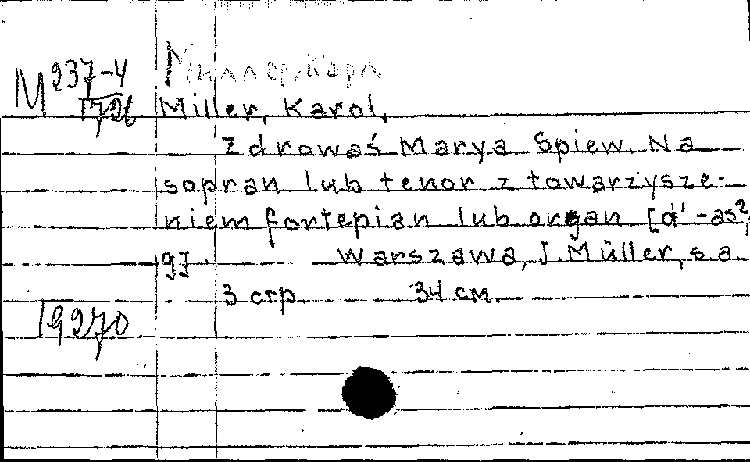 M 237-4
1726
Миллер, Карл
Miller, Karol,
Zdrowaś Marya Spiew. Na
sopran lub tenor z towarzysze-
niem fortepian lub organ [d'-as²,
g].
Warszawa, J. Müller, s.a.
3 стр. 34 см.
19270